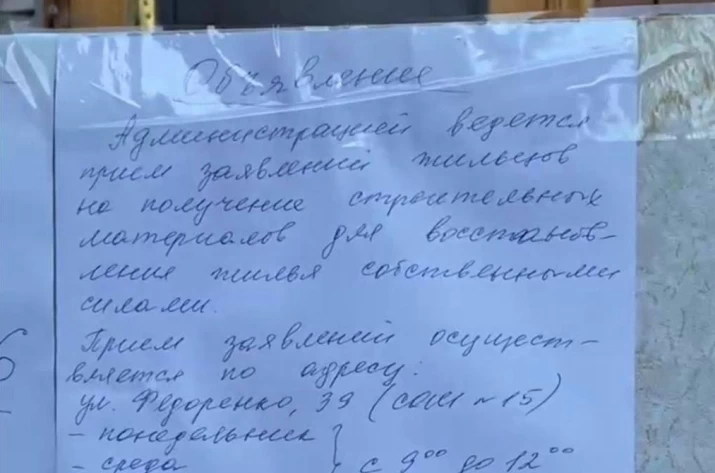 Объявление
Администрацией ведется
прием заявлений жильцов
на получение строительных
материалов для восстанов-
ления жилья собственными
силами.
Прием заявлений осущест-
вляется по адресу:
ул. Федоренко, 39 (сош №15)
- понедельник
- среда } с 9⁰⁰ до 12⁰⁰